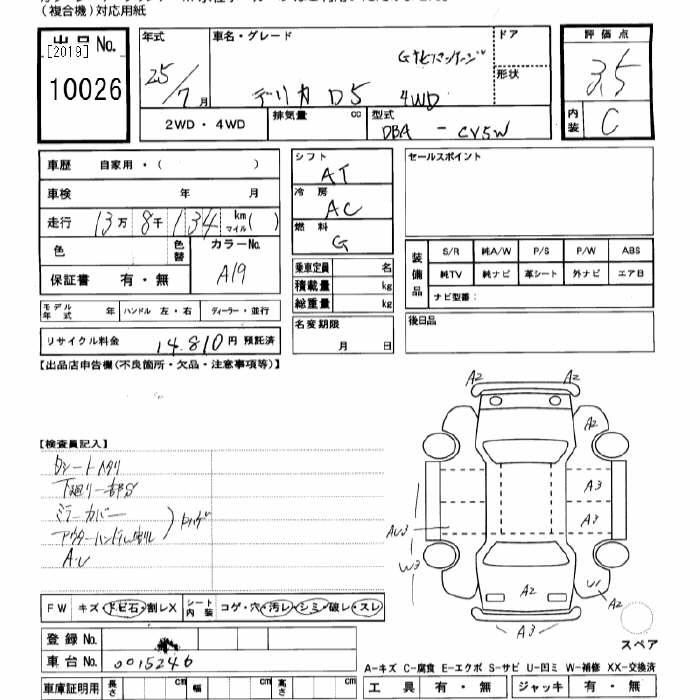 (複合機)対応用紙
出品 No.
[2019]
10026
年式
25/7 月
車名・グレード
デリカ D5 4WD
ドア
形状
評価点
3.5
内装
C
2WD・4WD
排気量 cc
型式
DBA - CV5W
車歴 自家用・( )
車検 年 月
走行 13万 8千 134 km マイル( )
色
色替
カラーNo.
A19
保証書 有・無
モデル年式 年
ハンドル 左・右
ディーラー・並行
リサイクル料金 14,810円 預託済
シフト
AT
冷房
AC
燃料
G
乗車定員 名
積載量 kg
総重量 kg
名変期限
月 日
セールスポイント
装備品
S/R 純A/W P/S P/W ABS
純TV 純ナビ 革シート 外ナビ エアB
ナビ型番:
後日品
【出品店申告欄(不良箇所・欠品・注意事項等)】
【検査員記入】
下廻り一部S
ミラーカバー
A・U
FW キズ・トビ石・割レX
シート内装 コゲ・穴・汚レ・シミ・破レ・スレ
登録 No.
車台 No. 0015246
車庫証明用 長さ cm 幅 cm 高さ cm
A2 A2
A2
A3
A3
W3
A2
U1
A2
A3
スペア
A-キズ C-腐食 E-エクボ S-サビ U-凹ミ W-補修 XX-交換済
工具 有・無 ジャッキ 有・無